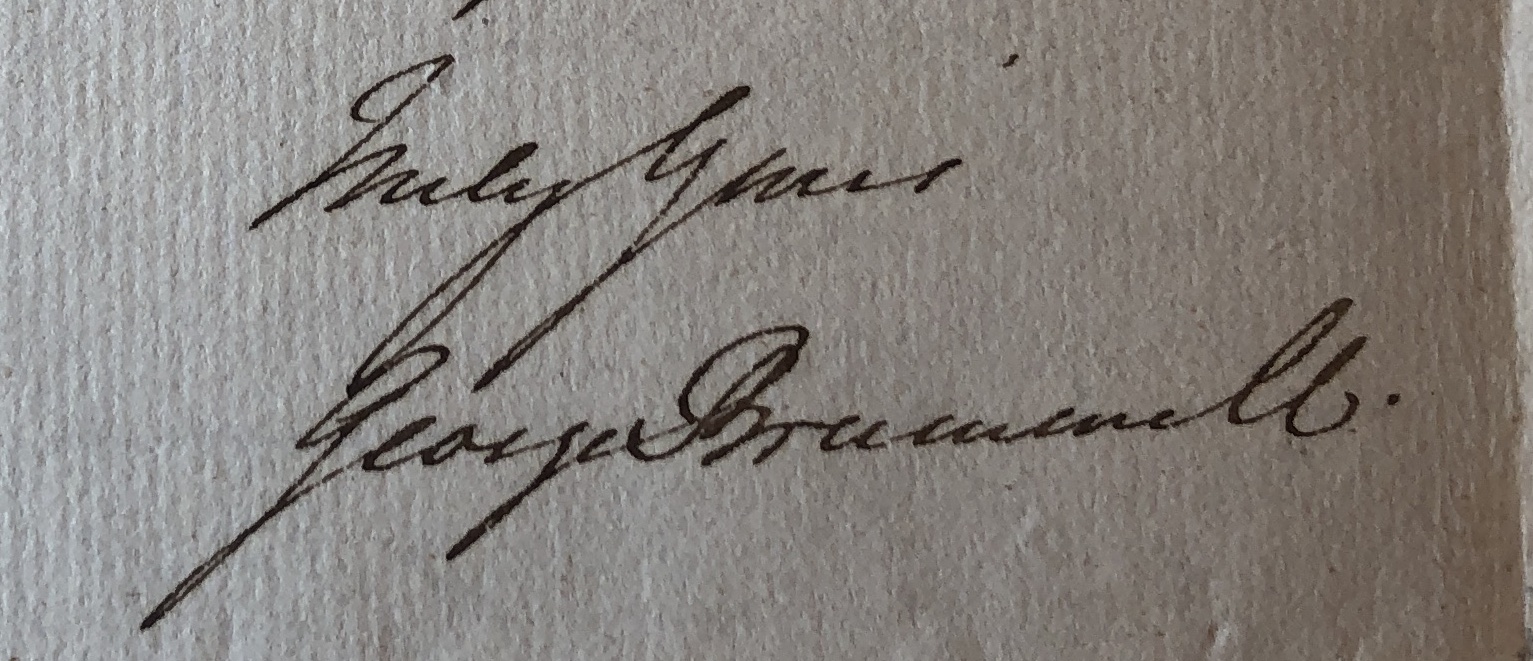 Truly Yours
George Brummell.